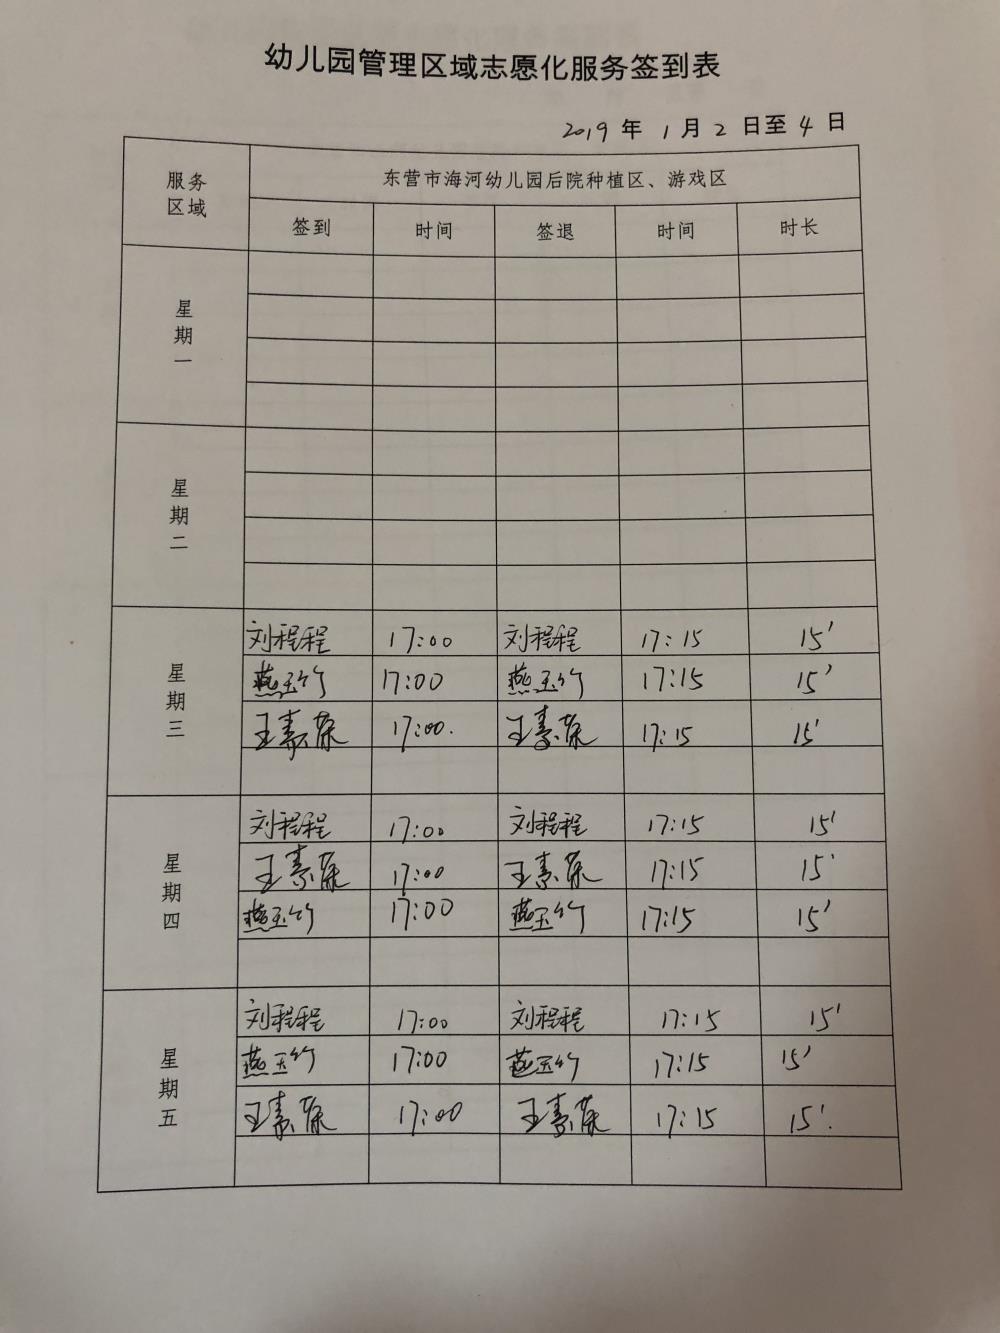 幼儿园管理区域志愿化服务签到表
2019 年 1 月 2 日至 4 日
服务区域 东营市海河幼儿园后院种植区、游戏区
签到 时间 签退 时间 时长
星期一
星期二
星期三
刘程程 17:00 刘程程 17:15 15'
燕玉竹 17:00 燕玉竹 17:15 15'
王素葆 17:00. 王素葆 17:15 15'
星期四
刘程程 17:00 刘程程 17:15 15'
王素葆 17:00 王素葆 17:15 15'
燕玉竹 17:00 燕玉竹 17:15 15'
星期五
刘程程 17:00 刘程程 17:15 15'
燕玉竹 17:00 燕玉竹 17:15 15'
王素葆 17:00 王素葆 17:15 15'.